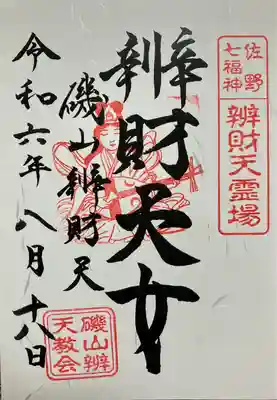 佐野
七福神
辨財天霊場
辨財天女
磯山辨財天
令和六年八月十八日
磯山辨
天教会